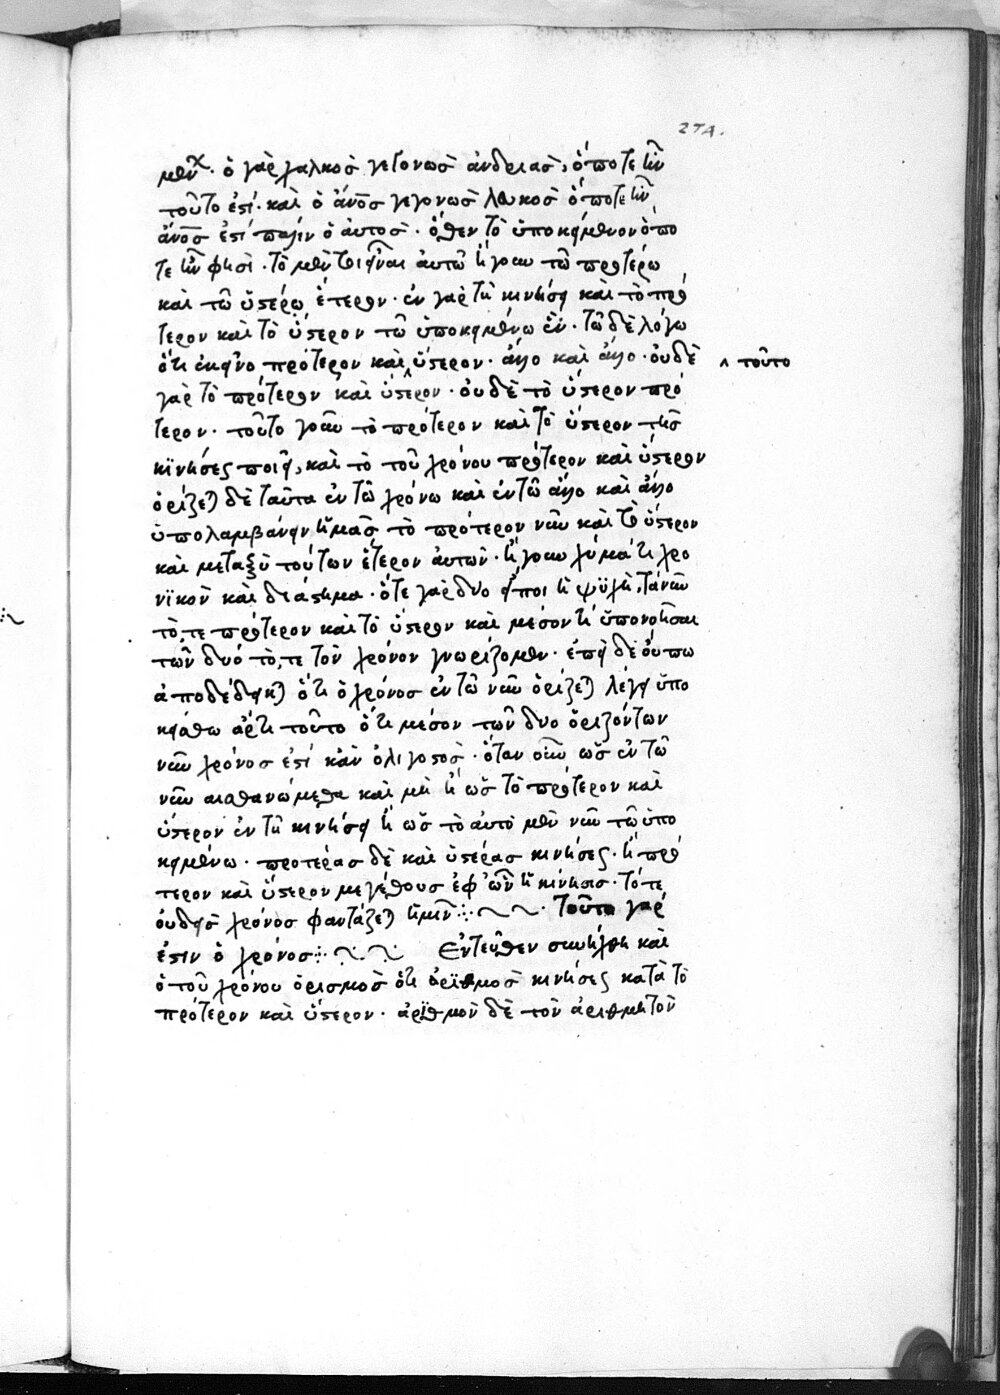 271.
μένχ· ὁ γὰρ χαλκὸς γεγονὼς ἀνδριὰς, ὅποτε ἦν
τοῦτο ἐστί· καὶ ὁ ἄνος γεγονὼς λευκὸς ὅποτε ἦν
ἄνος ἐστί πάλιν ὁ αὐτὸς· ὅθεν τὸ ὑποκείμενον ὅπο
τε ἦν φησὶ· τὸ μὲν εἶναι αὐτῶ ἤγουν τῶ προτέρω
καὶ τῶ ὑστέρω ἕτερον· ἐν γὰρ τῆ κινήσει καὶ τὸ πρό
τερον καὶ τὸ ὕστερον τῶ ὑποκειμένω ἕν· τῶ δὲ λόγω
ὅτι ἐκεῖνο πρότερον καὶ ὕστερον· ἄλλο καὶ ἄλλο· οὐδὲ
^ τοῦτο
γὰρ τὸ πρότερον καὶ ὕστερον· οὐδὲ τὸ ὕστερον πρό
τερον· τοῦτο γοῦν τὸ πρότερον καὶ τὸ ὕστερον τῆς
κϊνήσεως ποιεῖ, καὶ τὸ τοῦ χρόνου πρότερον καὶ ὕστερον
ὁρίζεται δὲ ταῦτα ἐν τῶ χρόνω καὶ ἐν τῶ ἄλλο καὶ ἄλλο
ὑπολαμβάνειν ἡμᾶς τὸ πρότερον νῦν καὶ τὸ ὕστερον
καὶ μεταξὺ τούτων ἕτερον αὐτῶν· ἤγουν χύμά τι χρο
νϊκὸν καὶ διάστημα· ὅτε γὰρ δύο εἴποι ἡ ψϋχὴ, τὰ νῦν
τὸ, τε πρότερον καὶ τὸ ὕστερον καὶ μέσον τί ὑπονοῆσαι
τῶν δυό τὸ, τε τὸν χρόνον γνωρίζομεν· ἐπεὶ δὲ οὔπω
ἀποδέδεικται ὅτι ὁ χρόνος ἐν τῶ νῦν ὁρίζεται λέγει ὑπο
κείσθω ἄρτι τοῦτο ὅτι μέσον τῶν δυο ὁριζόντων
νῦν χρόνος ἐστί κἂν ὀλιγοστὸς· ὅταν οὖν ὡς ἐν τῶ
νῦν αισθανώμεθα καὶ μὴ ἢ ὡς τὸ πρότερον καὶ
ὕστερον ἐν τῆ κινήσει ἢ ὡς τὸ αὐτὸ μὲν νῦν τῶ ὑπο
κειμένω· προτέρας δὲ καὶ ὑστέρας κινήσεως· ἢ πρό
τερον καὶ ὕστερον μεγέθους ἐφ᾽ ὧν ἡ κίνησις· τό τε
ουδεὶς χρόνος φαντάζεται ἡμῖν⁘~~· Τοῦτο γάρ
ἐστιν ὁ χρόνος⁘~·~ Ἐντεῦθεν συνήχθη καὶ
ὁ τοῦ χρόνου ὁρισμὸς ὅτι ἀρϊθμὸς κινήσεως κατὰ τὸ
πρότερον καὶ ὕστερον· ἀρϊθμὸν δὲ τὸν ἀριθμητὸν